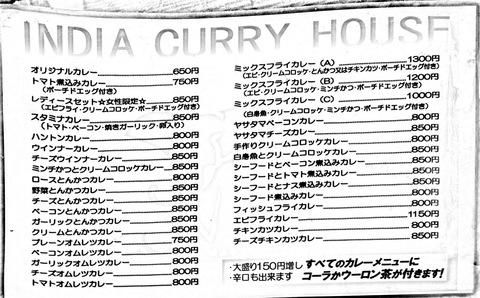 INDIA CURRY HOUSE
オリジナルカレー 650円
トマト煮込みカレー 750円
(ポーチドエッグ付き)
レディースセット☆女性限定☆ 850円
(エビフライ・クリームコロッケ・ポーチドエッグ付き)
スタミナカレー 850円
(トマト・ベーコン・焼きガーリック・卵入り)
ハントンカレー 800円
ウインナーカレー 800円
チーズウインナーカレー 850円
ミンチかつとクリームコロッケカレー 850円
ロースとんかつカレー 800円
野菜とんかつカレー 850円
チーズとんかつカレー 850円
ベーコンとんかつカレー 850円
ガーリックとんかつカレー 850円
クリームとんかつカレー 850円
プレーンオムレツカレー 750円
ベーコンオムレツカレー 800円
ガーリックオムレツカレー 800円
チーズオムレツカレー 800円
トマトオムレツカレー 800円
ミックスフライカレー (A) 1300円
(エビ・クリームコロッケ・とんかつ又はチキンカツ・ポーチドエッグ付き)
ミックスフライカレー (B) 1200円
(エビ・クリームコロッケ・ミンチかつ・ポーチドエッグ付き)
ミックスフライカレー (C) 1000円
(白身魚・クリームコロッケ・ミンチかつ・ポーチドエッグ付き)
ヤサタマベーコンカレー 800円
ヤサタマチーズカレー 850円
手作りクリームコロッケカレー 800円
白身魚とクリームコロッケカレー 850円
シーフードとベーコン煮込みカレー 850円
シーフードとトマト煮込みカレー 850円
シーフードとナス煮込みカレー 850円
シーフード煮込みカレー 800円
フィッシュフライカレー 800円
エビフライカレー 1150円
チキンカツカレー 800円
チーズチキンカツカレー 850円
・大盛り150円増し
・辛口も出来ます
すべてのカレーメニューに
コーラかウーロン茶が付きます!